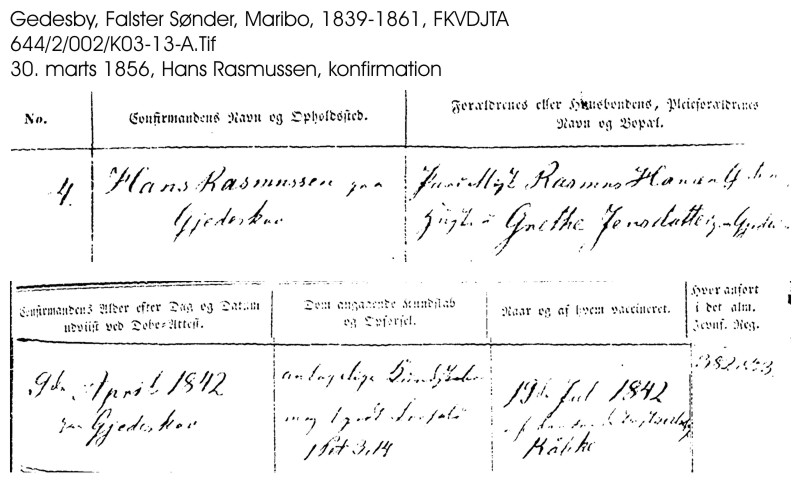 Gedesby, Falster Sønder, Maribo, 1839-1861, FKVDJTA
644/2/002/K03-13-A.Tif
30. marts 1856, Hans Rasmussen, konfirmation
No.
Confirmandens Navn og Opholdssted.
Forældrenes eller Huusbondens, Pleieforældrenes
Navn og Bopæl.
4.
Hans Rasmussen paa
Gjedeskov
Rasmus Hansen
Grethe Jensdatter
Confirmandens Alder efter Dag og Datum
udviist ved Døbe-Attest.
Dom angaaende Kundskab
og Opførsel.
Naar og af hvem vaccineret.
Hvor anført
i det alm.
Jevnf. Reg.
9de April 1842
paa Gjedeskov
antagelige Kundskaber
meg
1 Pet 3.14
19de Jul 1842
af